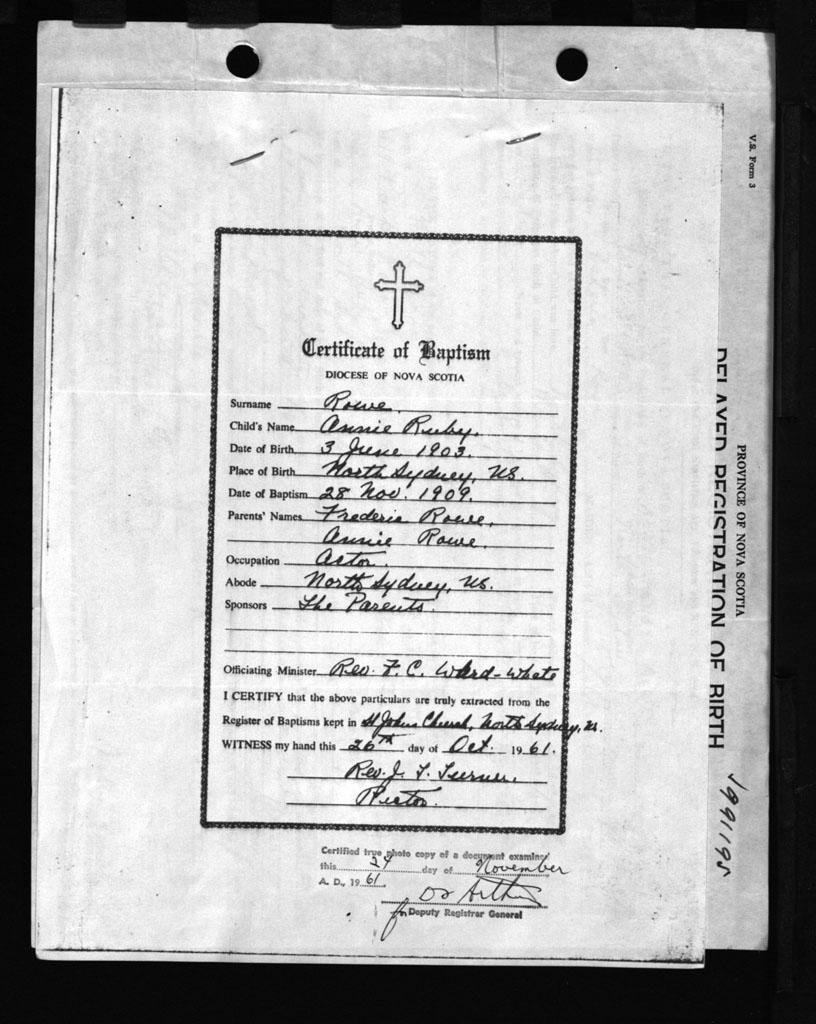 V.S. Form 3
PROVINCE OF NOVA SCOTIA
DELAYED REGISTRATION OF BIRTH
Certificate of Baptism
DIOCESE OF NOVA SCOTIA
Surname Rowe.
Child's Name Annie Ruby.
Date of Birth 3 June 1903.
Place of Birth North Sydney, NS.
Date of Baptism 28 Nov. 1909.
Parents' Names Frederic Rowe,
Annie Rowe.
Occupation Actor.
Abode North Sydney, NS.
Sponsors The Parents.
Officiating Minister Rev. F. C. Ward-Whate
I CERTIFY that the above particulars are truly extracted from the
Register of Baptisms kept in St Johns Church, North Sydney, NS.
WITNESS my hand this 26th day of Oct. 1961.
Rev. J. T. Turner.
Rector.
Certified true photo copy of a document examined
this 24 day of November
A. D., 1961
for Deputy Registrar General